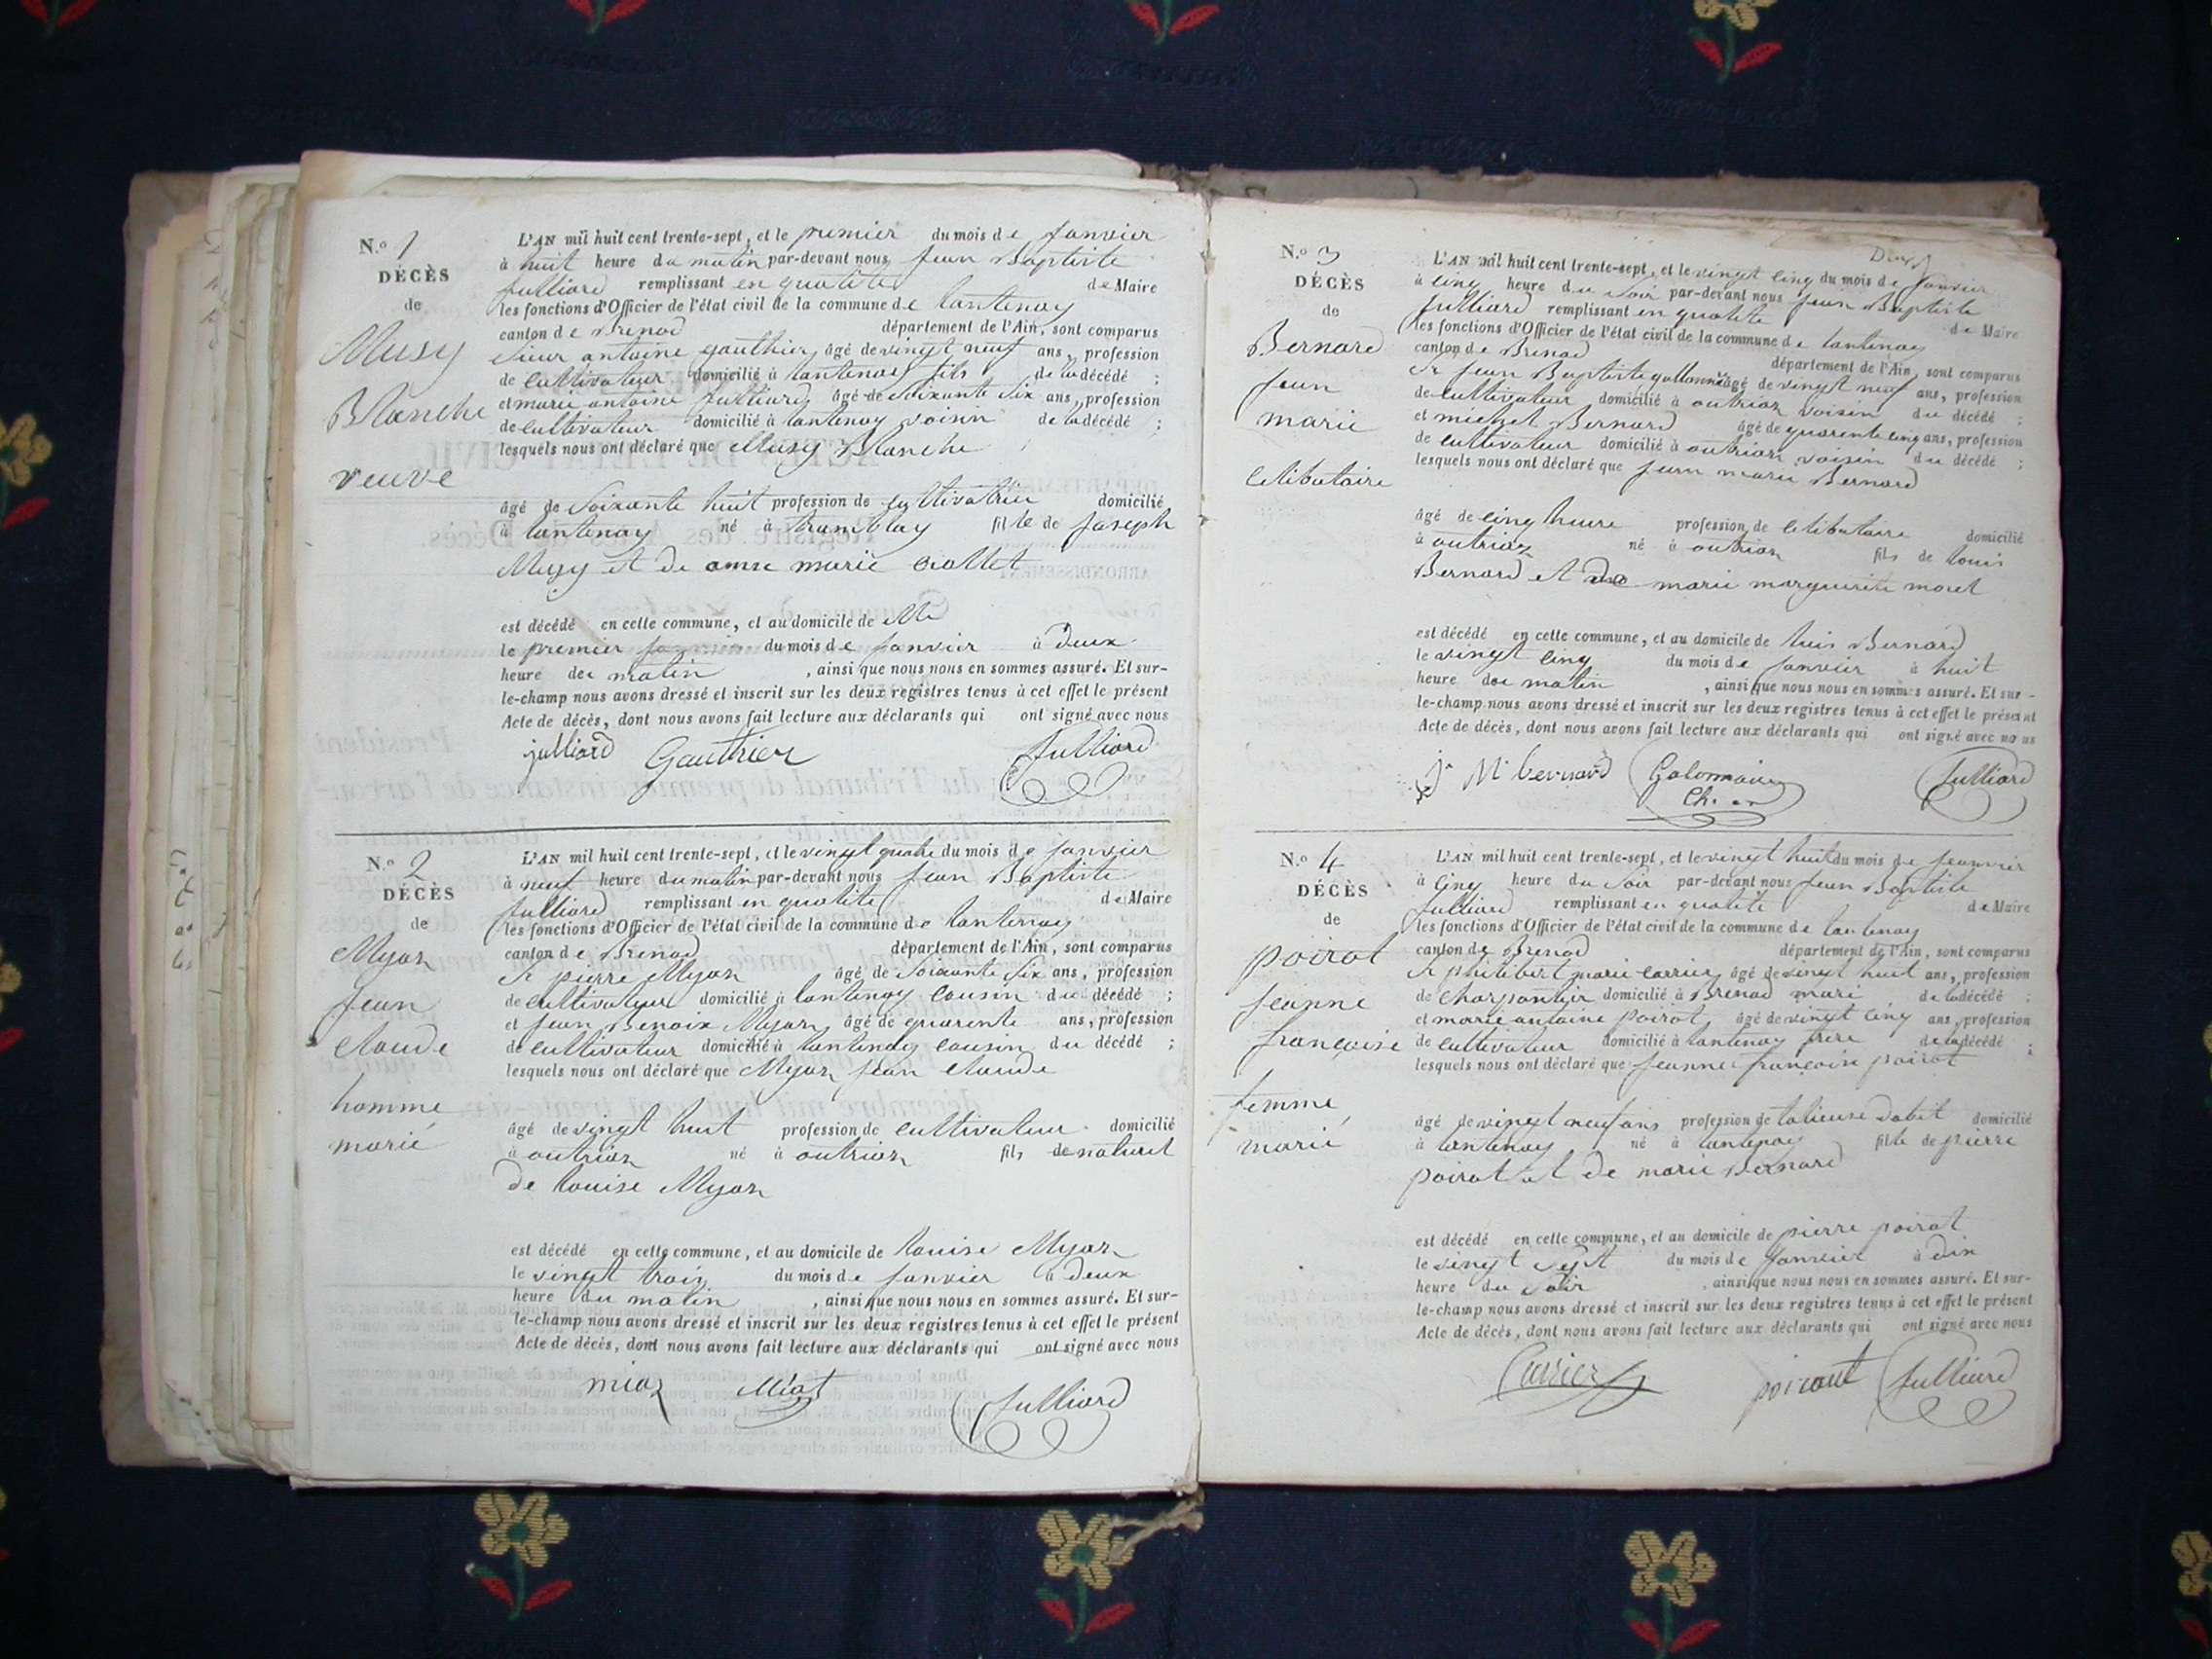 N.o 1
DÉCÈS
de
Musy
Blanche
veuve
L'AN mil huit cent trente-sept, et le premier du mois de janvier
à huit heure du matin par-devant nous jean Baptiste
julliard remplissant en qualité de Maire
les fonctions d'Officier de l'état civil de la commune de lantenay
canton de Brenod département de l'Ain, sont comparus
sieur antoine gauthier âgé de vingt neuf ans, profession
de cultivateur domicilié à lantenay fils de la décédé ;
et marie antoine julliard âgé de soixante six ans, profession
de cultivateur domicilié à lantenay voisin de la décédé ;
lesquels nous ont déclaré que Musy Blanche
âgé de soixante huit profession de cultivatrice domicilié
à lantenay né à tramblay fille de joseph
Musy et de anne marie
est décédé en cette commune, et au domicile de
le premier du mois de janvier à deux
heure du matin , ainsi que nous nous en sommes assuré. Et sur-
le-champ nous avons dressé et inscrit sur les deux registres tenus à cet effet le présent
Acte de décès, dont nous avons fait lecture aux déclarants qui ont signé avec nous
julliard Gauthier Julliard
N.o 2
DÉCÈS
de
Myon
jean
claude
homme
marié
L'AN mil huit cent trente-sept, et le vingt quatre du mois de janvier
à neuf heure du matin par-devant nous jean Baptiste
julliard remplissant en qualité de Maire
les fonctions d'Officier de l'état civil de la commune de lantenay
canton de Brenod département de l'Ain, sont comparus
Sr pierre Myon âgé de soixante six ans, profession
de cultivateur domicilié à lantenay cousin du décédé ;
et jean Benoix Myon âgé de quarente ans, profession
de cultivateur domicilié à lantenay cousin du décédé ;
lesquels nous ont déclaré que Myon jean claude
âgé de vingt huit profession de cultivateur domicilié
à outrian né à outrian fils de naturel
de louise Myon
est décédé en cette commune, et au domicile de louise Myon
le vingt trois du mois de janvier à deux
heure du matin , ainsi que nous nous en sommes assuré. Et sur-
le-champ nous avons dressé et inscrit sur les deux registres tenus à cet effet le présent
Acte de décès, dont nous avons fait lecture aux déclarants qui ont signé avec nous
Julliard
N.o 3
DÉCÈS
de
Bernard
jean
marie
celibataire
L'AN mil huit cent trente-sept, et le vingt cinq du mois de janvier
à cinq heure du soir par-devant nous jean Baptiste
julliard remplissant en qualité de Maire
les fonctions d'Officier de l'état civil de la commune de lantenay
canton de Brenod département de l'Ain, sont comparus
Sr jean Baptiste âgé de vingt neuf ans, profession
de cultivateur domicilié à outrian voisin du décédé ;
et michel Bernard âgé de quarente cinq ans, profession
de cultivateur domicilié à outrian voisin du décédé ;
lesquels nous ont déclaré que jean marie Bernard
âgé de cinq heure profession de celibataire domicilié
à outrian né à outrian fils de louis
Bernard et de marie marguerite moret
est décédé en cette commune, et au domicile de luis Bernard
le vingt cinq du mois de janvier à huit
heure du matin , ainsi que nous nous en sommes assuré. Et sur-
le-champ nous avons dressé et inscrit sur les deux registres tenus à cet effet le présent
Acte de décès, dont nous avons fait lecture aux déclarants qui ont signé avec nous
bernard Julliard
N.o 4
DÉCÈS
de
poirot
jeanne
françoise
femme
marié
L'AN mil huit cent trente-sept, et le vingt huit du mois de jeanvier
à cinq heure du soir par-devant nous jean Baptiste
julliard remplissant en qualité de Maire
les fonctions d'Officier de l'état civil de la commune de lantenay
canton de Brenod département de l'Ain, sont comparus
Sr philibert marie carrier âgé de vingt huit ans, profession
de charpantier domicilié à Brenod mari de la décédé ;
et marie antoine poirot âgé de vingt cinq ans, profession
de cultivateur domicilié à lantenay frere de la décédé ;
lesquels nous ont déclaré que jeanne françoise poirot
âgé de vingt neuf ans profession de talieuse dabit domicilié
à lantenay né à lantenay fille de pierre
poirot et de marie Bernard
est décédé en cette commune, et au domicile de pierre poirot
le vingt sept du mois de janvier à dix
heure du soir , ainsi que nous nous en sommes assuré. Et sur-
le-champ nous avons dressé et inscrit sur les deux registres tenus à cet effet le présent
Acte de décès, dont nous avons fait lecture aux déclarants qui ont signé avec nous
Carrier Julliard